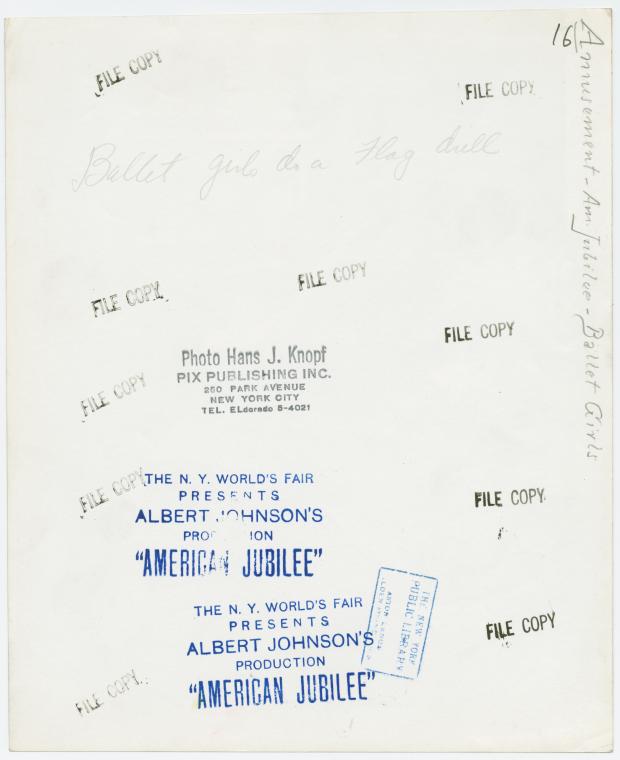 16
Amusement - Am. Jubilee - Ballet Girls
FILE COPY
FILE COPY
Ballet girls do a Flag drill
FILE COPY
FILE COPY
FILE COPY
Photo Hans J. Knopf
PIX PUBLISHING INC.
250 PARK AVENUE
NEW YORK CITY
TEL. ELdorado 5-4021
FILE COPY
FILE COPY
THE N. Y. WORLD'S FAIR
PRESENTS
ALBERT JOHNSON'S
PRO ION
"AMERICAN JUBILEE"
FILE COPY
THE N. Y. WORLD'S FAIR
PRESENTS
ALBERT JOHNSON'S
PRODUCTION
"AMERICAN JUBILEE"
THE NEW YORK
PUBLIC LIBRARY
ASTOR LENOX
FILE COPY
FILE COPY